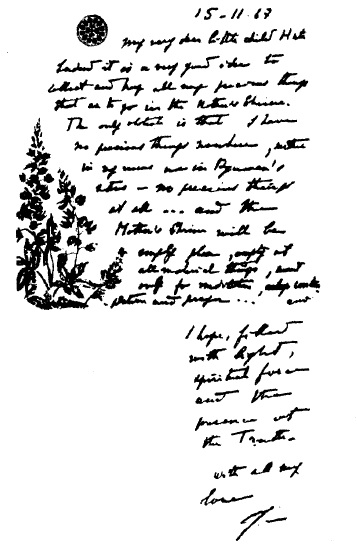 15-11-67
My very dear little child Huta
Indeed it is a very good idea to
collect and keep all my precious things
that are to go in the Mother's Shrine.
The only obstacle is that I have
no precious things nowhere, neither
in my rooms nor in
— no precious things
at all ... and the
Mother's Shrine will be
a empty place, empty of
all material things, and
only for meditation,
and prayer ... and
I hope, filled
with light,
spiritual force
and the
presence of
the Truth.
with all my
love